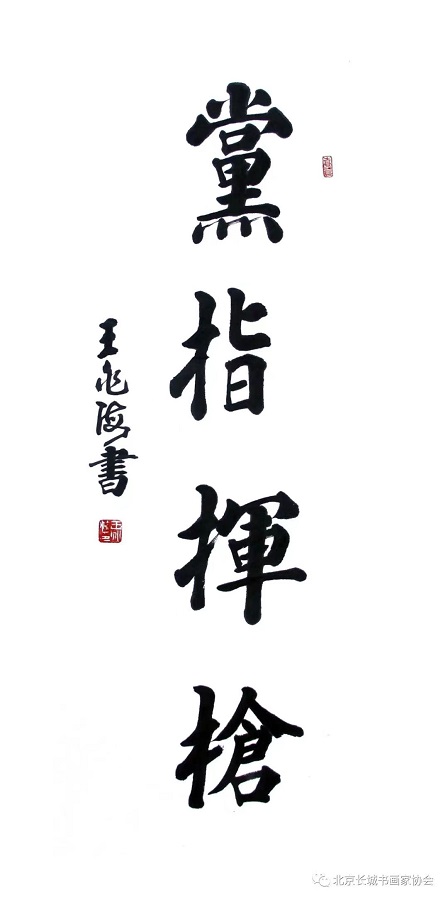 黨指揮槍
王兆海書
北京长城书画家协会